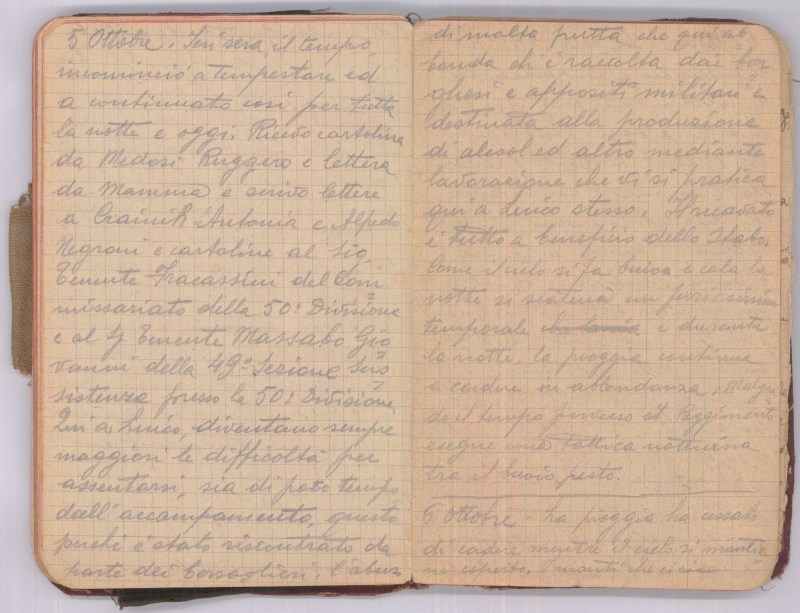 5 Ottobre. Ieri sera il tempo,
incominciò a tempestare ed
a continuato così per tutta
la notte e oggi. Ricevo cartolina
da Medosi Ruggero e lettera
da Mamma e scrivo lettere
a Crainik Antonia e Alfredo
Negroni e cartoline al Sig
Tenente Fracassini del Com
missariato della 50ª Divisione
e al Tenente Massabo Gio
vanni della 49ª Sezione Sus
sistenza presso la 50ª Divisione
Qui a Luico, diventano sempre
maggiori le difficoltà per
assentarsi, sia di poco tempo
dall'accampamento, questo
perchè è stato riscontrato da
parte dei Bersaglieri, l'abuso
di molta frutta che qui ab
bonda ch'è raccolta dai bor
ghesi e appositi militari e
destinata alla produzione
di alcool ed altro mediante
lavorazione che vi si pratica
qui a Luico stesso. Il ricavato
è tutto a beneficio dello Stato.
Come il cielo si fa buio e cala la
notte si scatena un furiosissimo
temporale e durante
la notte, la pioggia continua
a cadere in abbondanza. Malgra
do il tempo perverso il Reggimento
esegue una tattica notturna
tra il buio pesto.
6 Ottobre - La pioggia ha cessato
di cadere mentre il cielo si mantie
ne coperto. I monti che